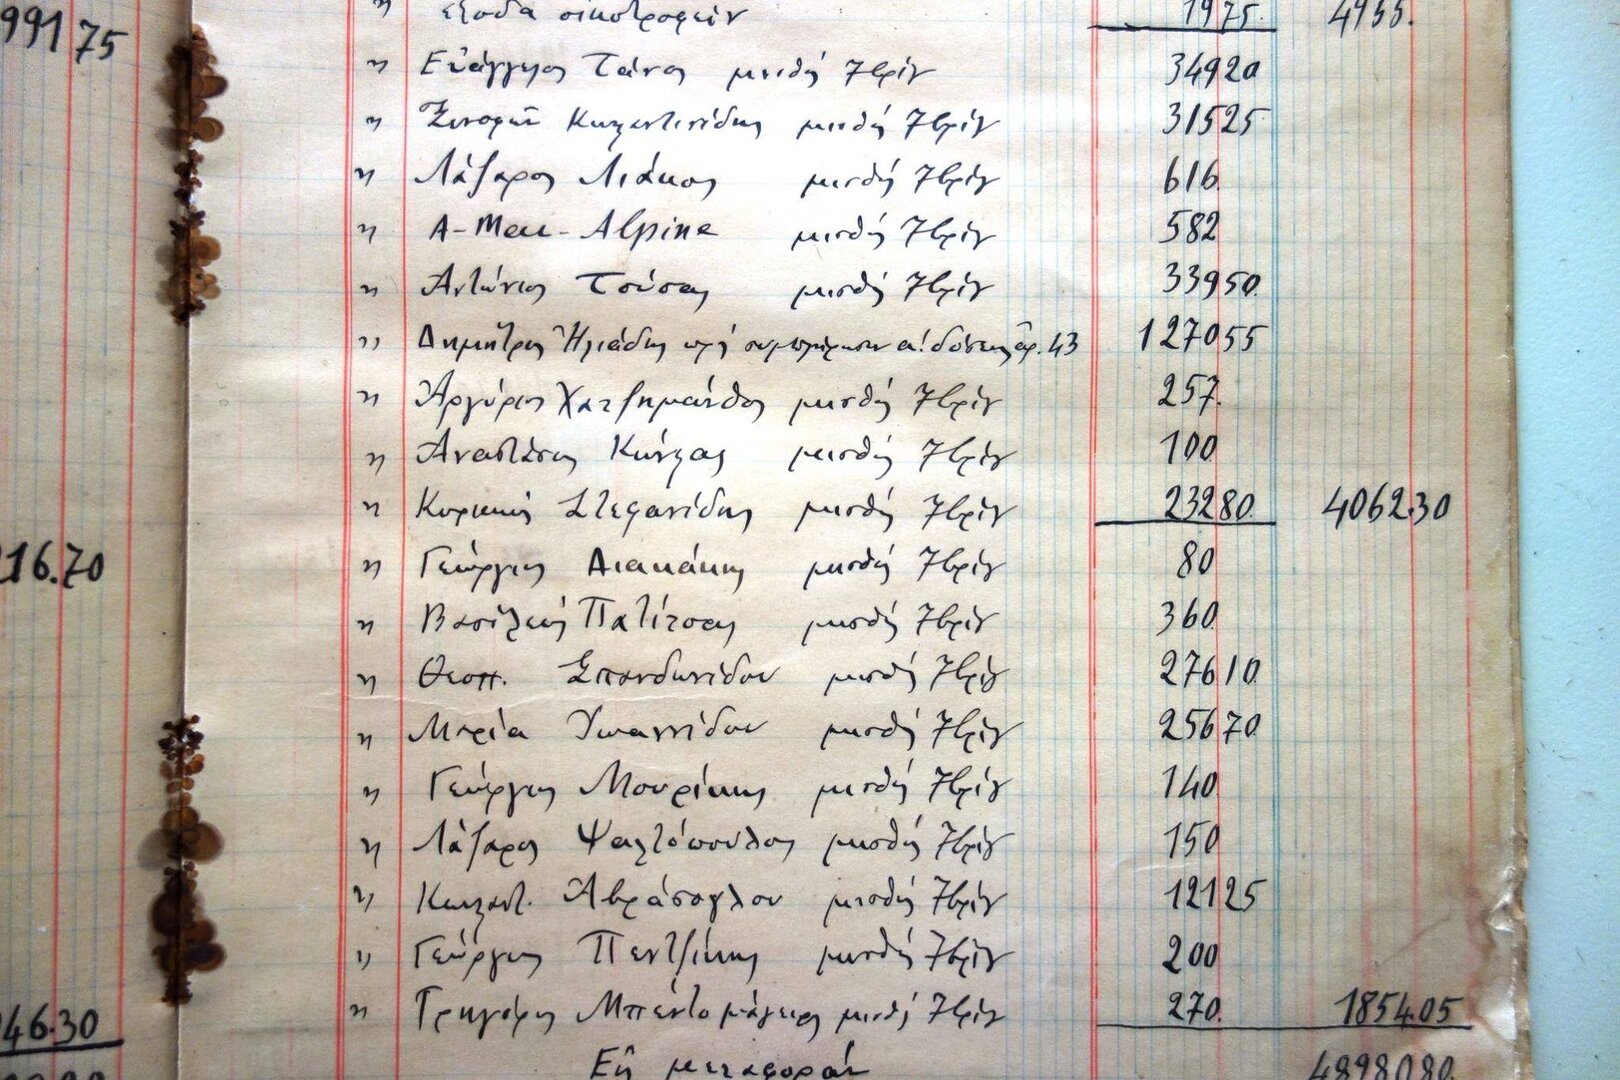 99175
" ἔξοδα οἰκοτροφείου 1975. 4933.
" Εὐάγγελος Τάνος μισθός 7βρίου 34920
" Ξενοφῶν Κωνσταντινίδης μισθός 7βρίου 31525
" Λάζαρος Λιάκος μισθός 7βρίου 616
" A-Mac-Alpine μισθός 7βρίου 582
" Ἀντώνιος Τσούσας μισθός 7βρίου 33950
" Δημήτριος Ἠλιάδης πρὸς συμπλήρωσιν α! δόσεως ἀρ. 43 127055
" Ἀργύριος Χατζημάνθος μισθός 7βρίου 257
" Ἀναστάσιος μισθός 7βρίου 100
" Κυριακὴ Στεφανίδης μισθός 7βρίου 23280 4062.30
216.70 " Γεώργιος Διακάκης μισθός 7βρίου 80
" Βασίλειος Πατίτσας μισθός 7βρίου 360
" Θεοπ. Σπανδωνίδου μισθός 7βρίου 27610
" Μαρία Ἰωαννίδου μισθός 7βρίου 25670
" Γεώργιος Μουρίκης μισθός 7βρίου 140
" Λάζαρος Ψαλτόπουλος μισθός 7βρίου 150
" Κωνστ. Ἀβράσογλου μισθός 7βρίου 12125
" Γεώργιος Πεντζίκης μισθός 7βρίου 200
46.30 " Γρηγόριος Μπέντο μάγειρος μισθός 7βρίου 270 1854.05
Εἰς μεταφοράν 4898080